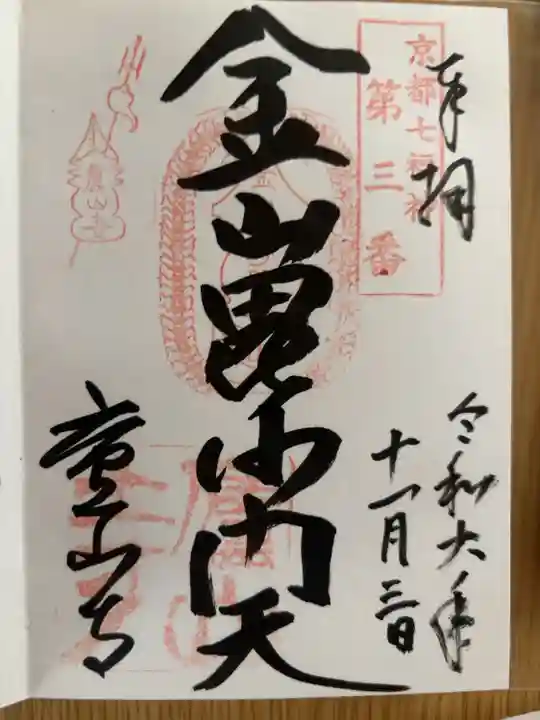 奉拝
京都七福神
第三番
金山毘沙門天
令和六年
十一月三日
廬山寺